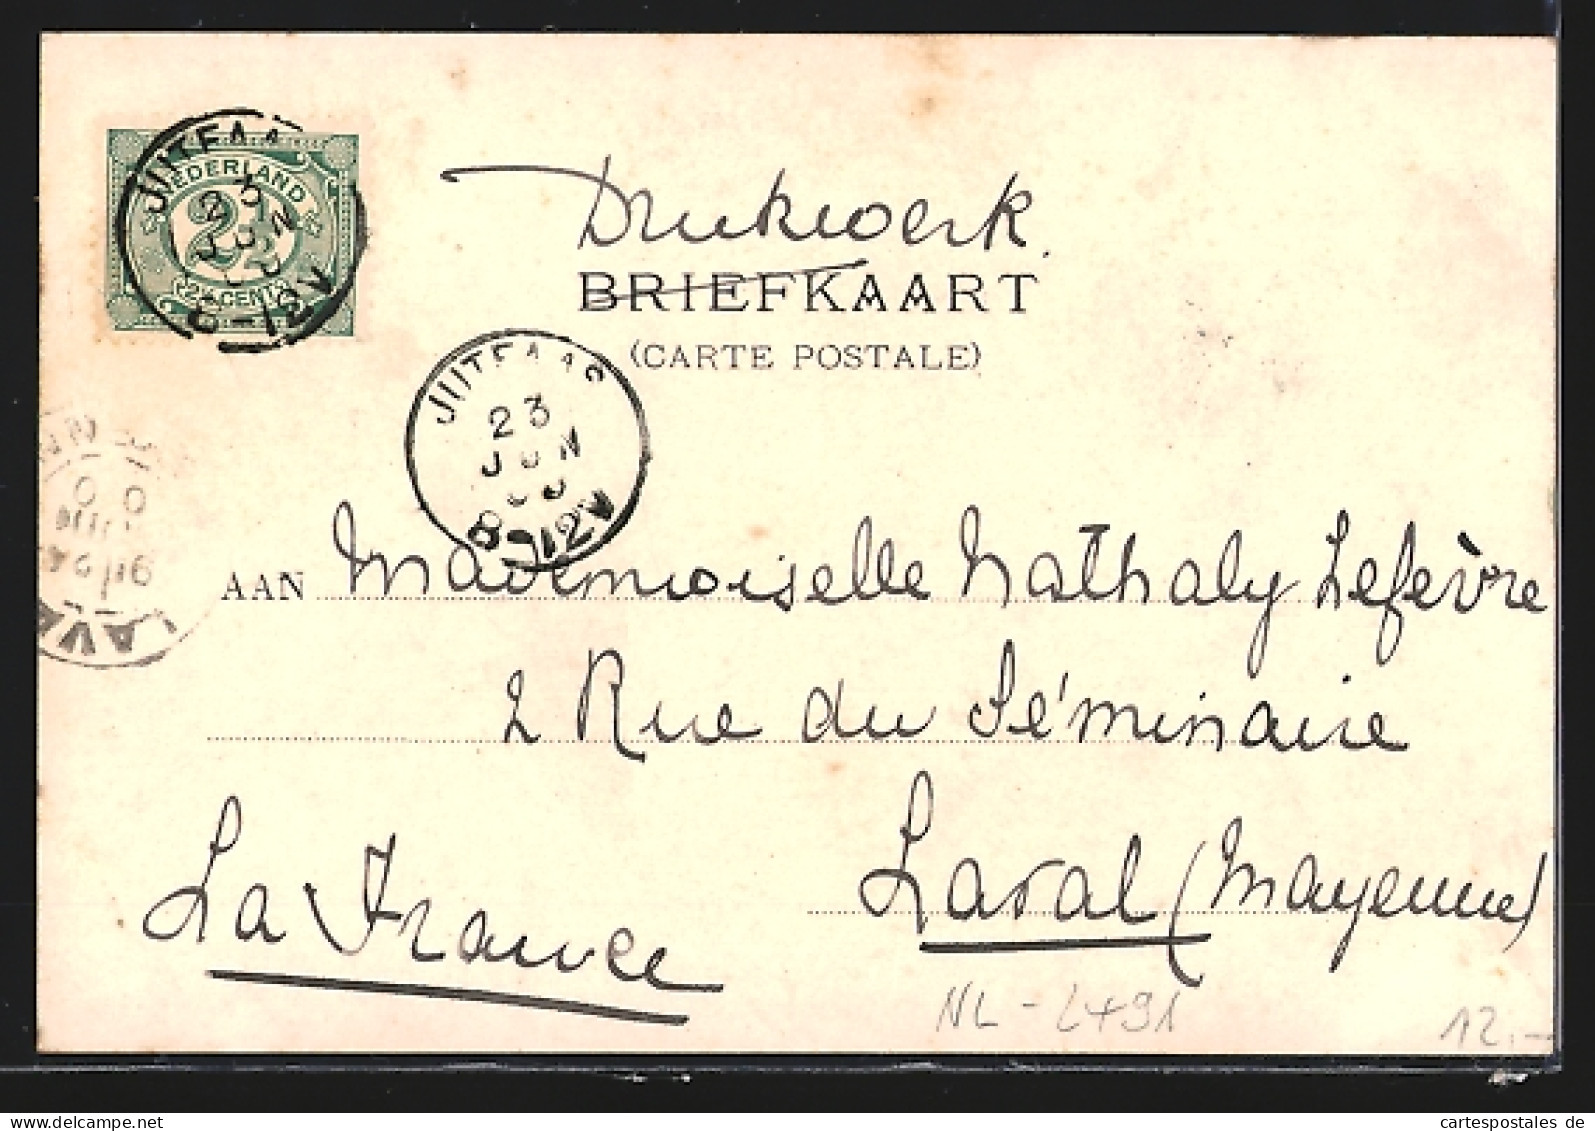 NEDERLAND
2½
2½ CENT
23
JUN
8-12V
Drukwerk.
BRIEFKAART
(CARTE POSTALE)
23
JUN
8-12V
AAN Mademoiselle Nathaly Lefèvre
2 Rue du Séminaire
Laval (Mayenne)
La France
NL-2491
12.-
cartespostales de